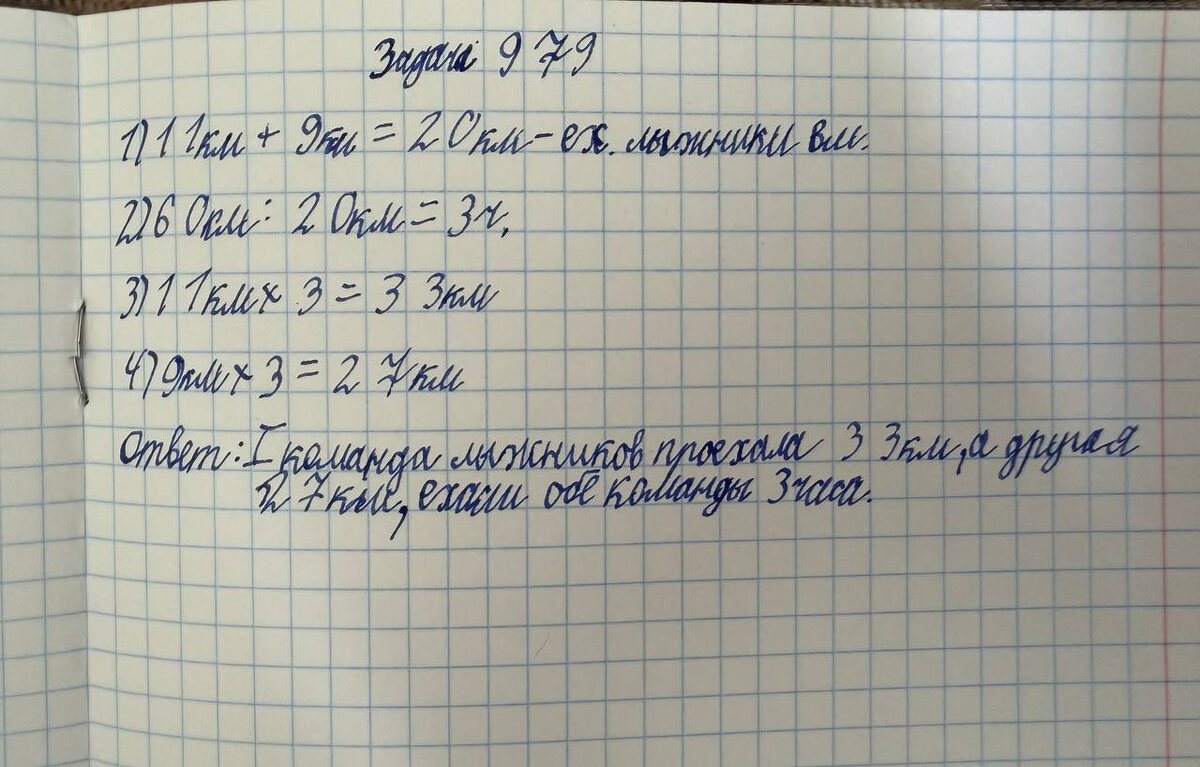 Задача 979
1) 11км + 9км = 20км - ех. лыжники вм.
2) 60км : 20км = 3ч.
3) 11км × 3 = 33км
4) 9км × 3 = 27км
Ответ: I команда лыжников проехала 33км, а другая
27км, ехали обе команды 3 часа.